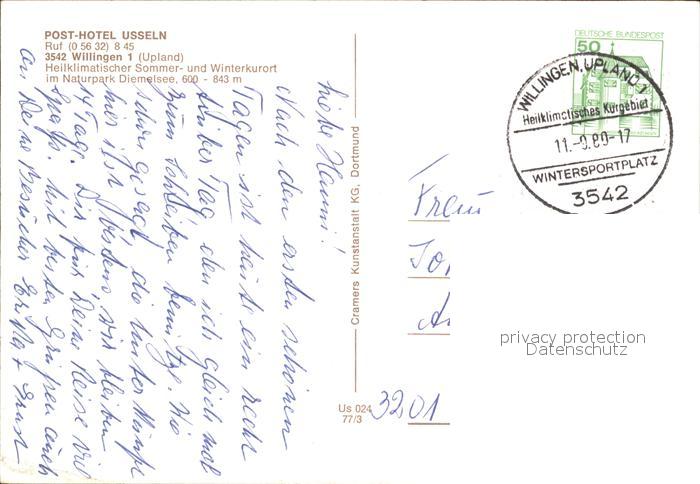 POST-HOTEL USSELN
Ruf (0 56 32) 8 45
3542 Willingen 1 (Upland)
Heilklimatischer Sommer- und Winterkurort
im Naturpark Diemelsee, 600 - 843 m
Liebe Hanni!
Nach den ersten schönen
Tagen ist heute ein recht
trüber Tag, den ich gleich mal
zum Schreiben benutze. Wie
schon gesagt, die Unterkünfte
hier ist bestens, wir bleiben
14 Tage. Dir für Deine Reise viel
Spaß. Mit besten Grüßen auch
an Deine Besucher
Cramers Kunstanstalt KG, Dortmund
Us 024
77/3
DEUTSCHE BUNDESPOST
50
WILLINGEN, UPLAND 1
Heilklimatisches Kurgebiet
11.-9.80-17
WINTERSPORTPLATZ
3542
Frau
3201
privacy protection
Datenschutz